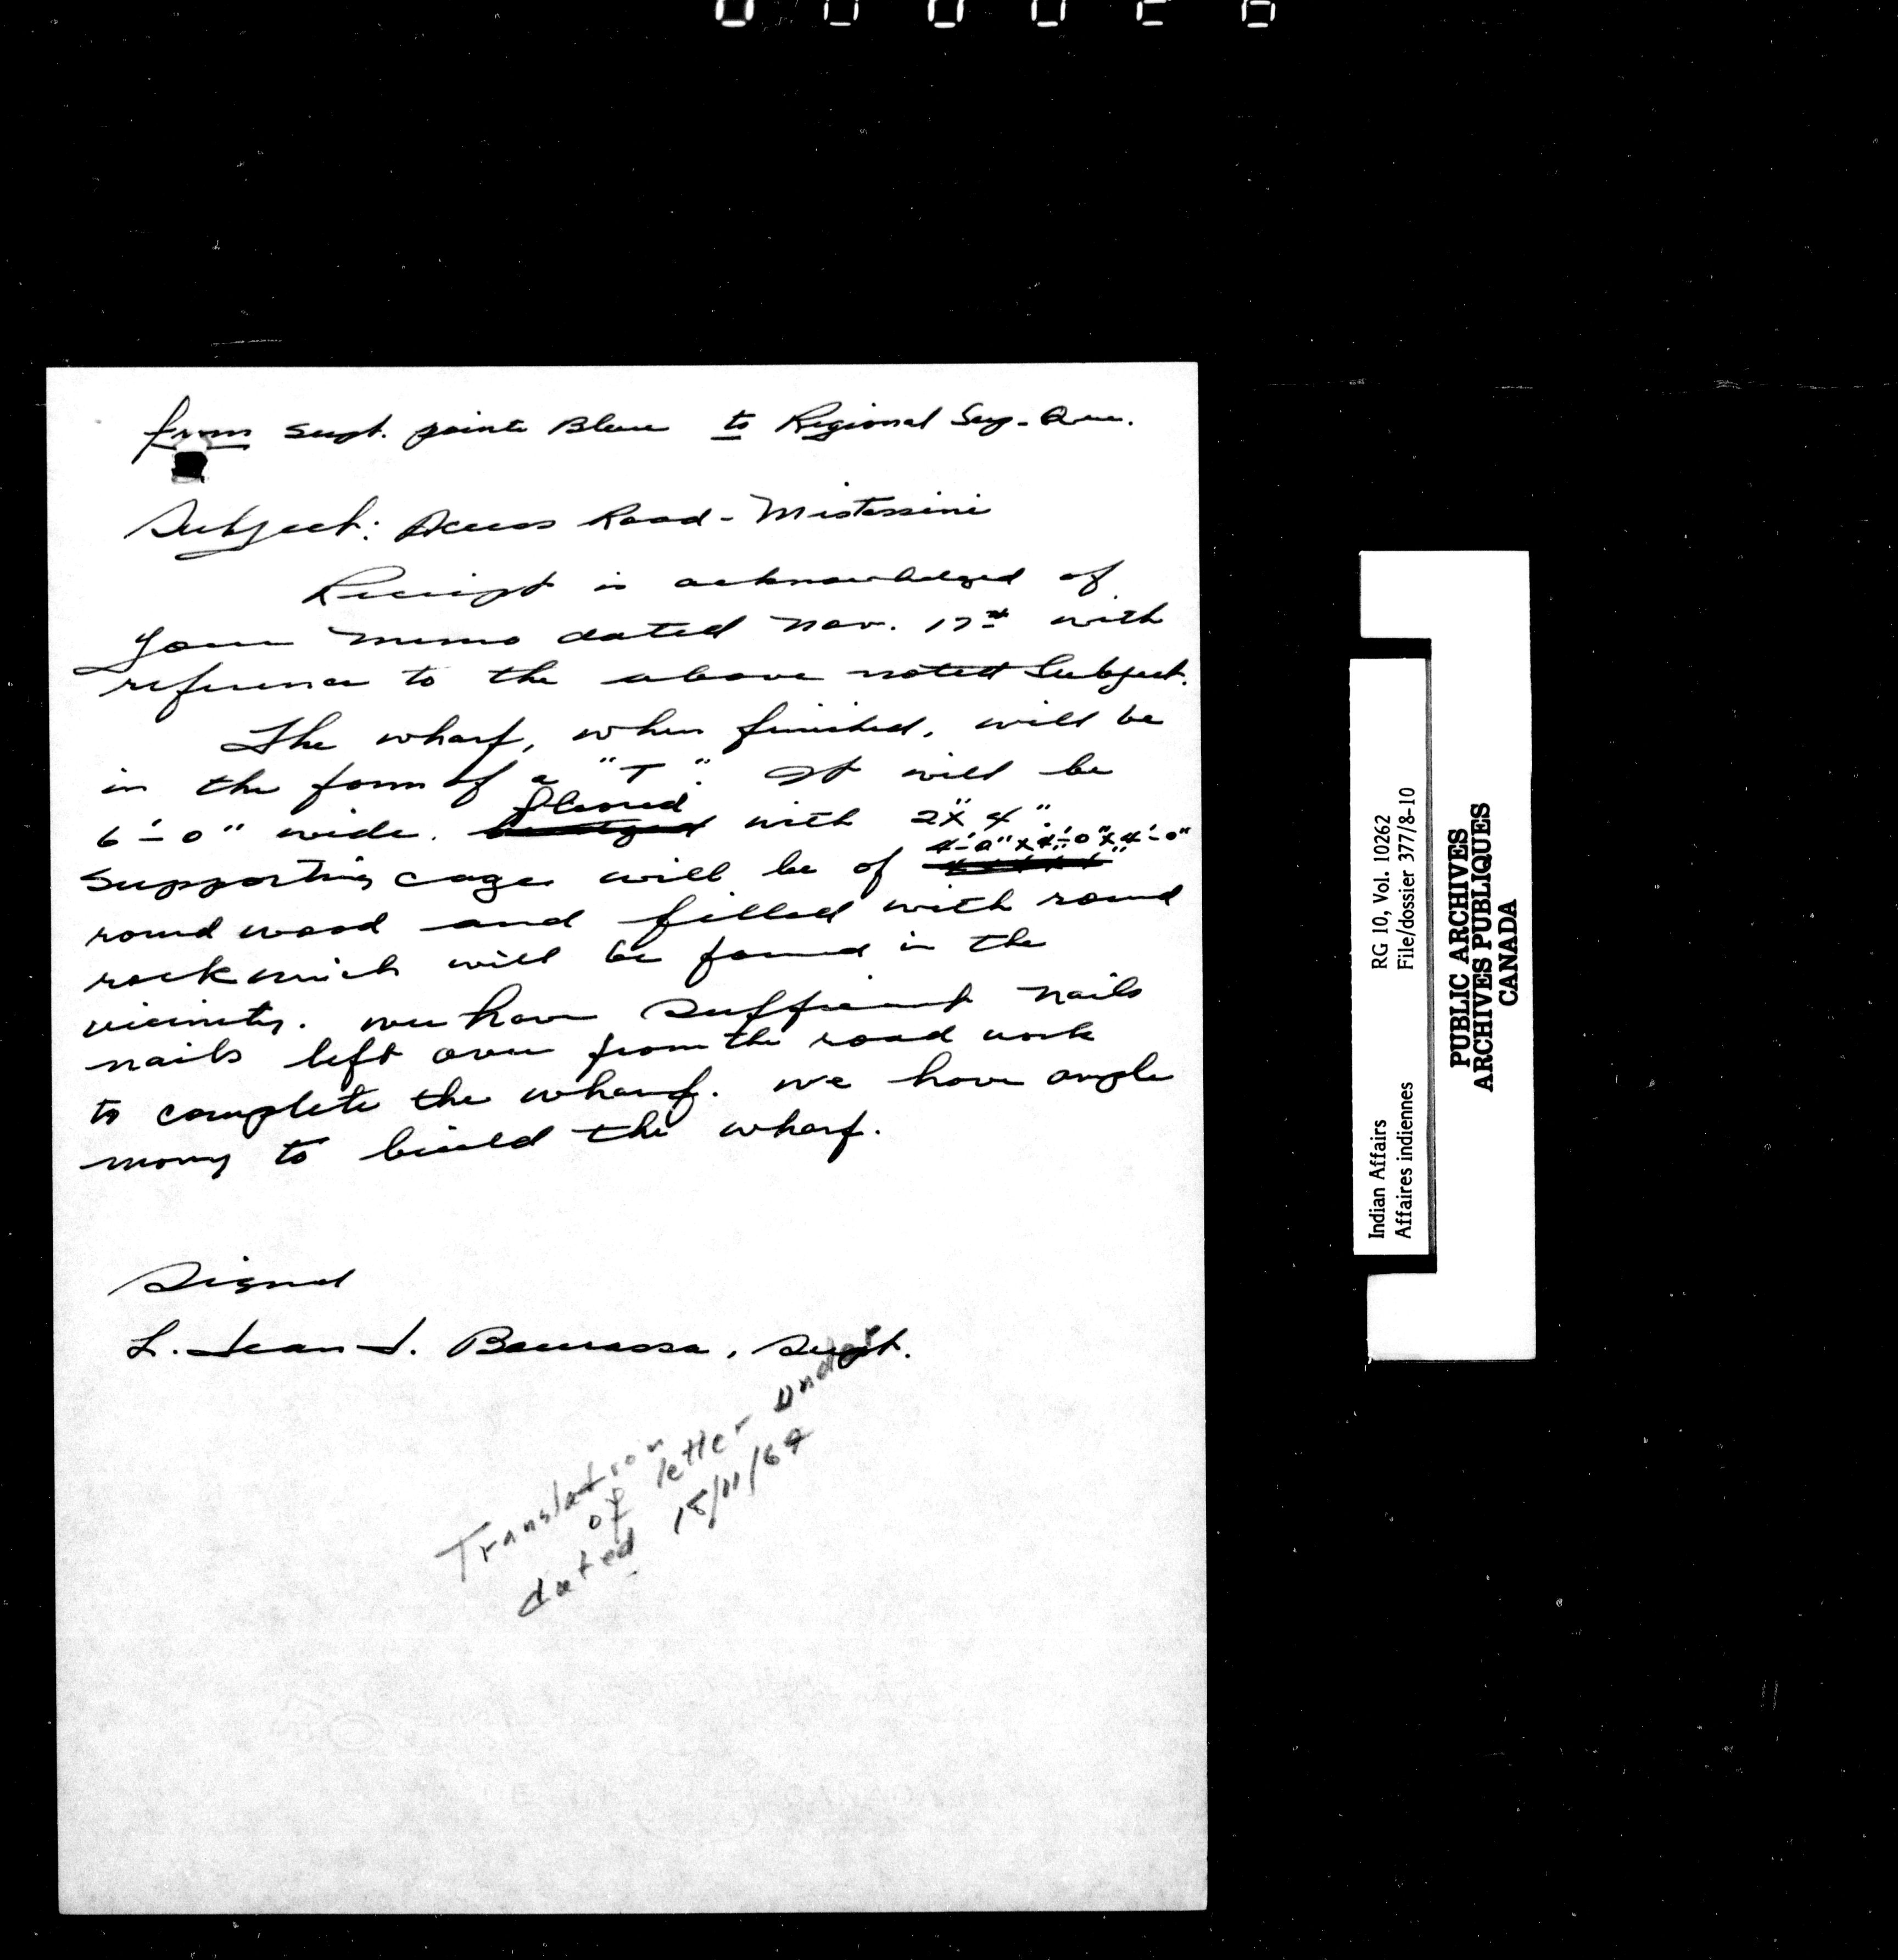 from Supt. pointe Bleue to Regional Sup. Que.
Subject: Access Road - Mistassini
Receipt is acknowledged of
your memo dated Nov. 17th with
reference to the above noted Subject.
The wharf, when finished, will be
in the form of a "T". It will be
6'-0" wide. floored with 2"x4".
4'-0"x4'-0"x4'-0"
Supporting cages will be of
round wood and filled with round
rock which will be found in the
vicinity. we have sufficient nails
nails left over from the road work
to complete the wharf. we have ample
money to build the wharf.
Signed
L. Jean J. Bourassa, Supt.
Translation
of letter under
dated 18/11/64
Indian Affairs RG 10, Vol. 10262
Affaires indiennes File/dossier 377/8-10
PUBLIC ARCHIVES
ARCHIVES PUBLIQUES
CANADA